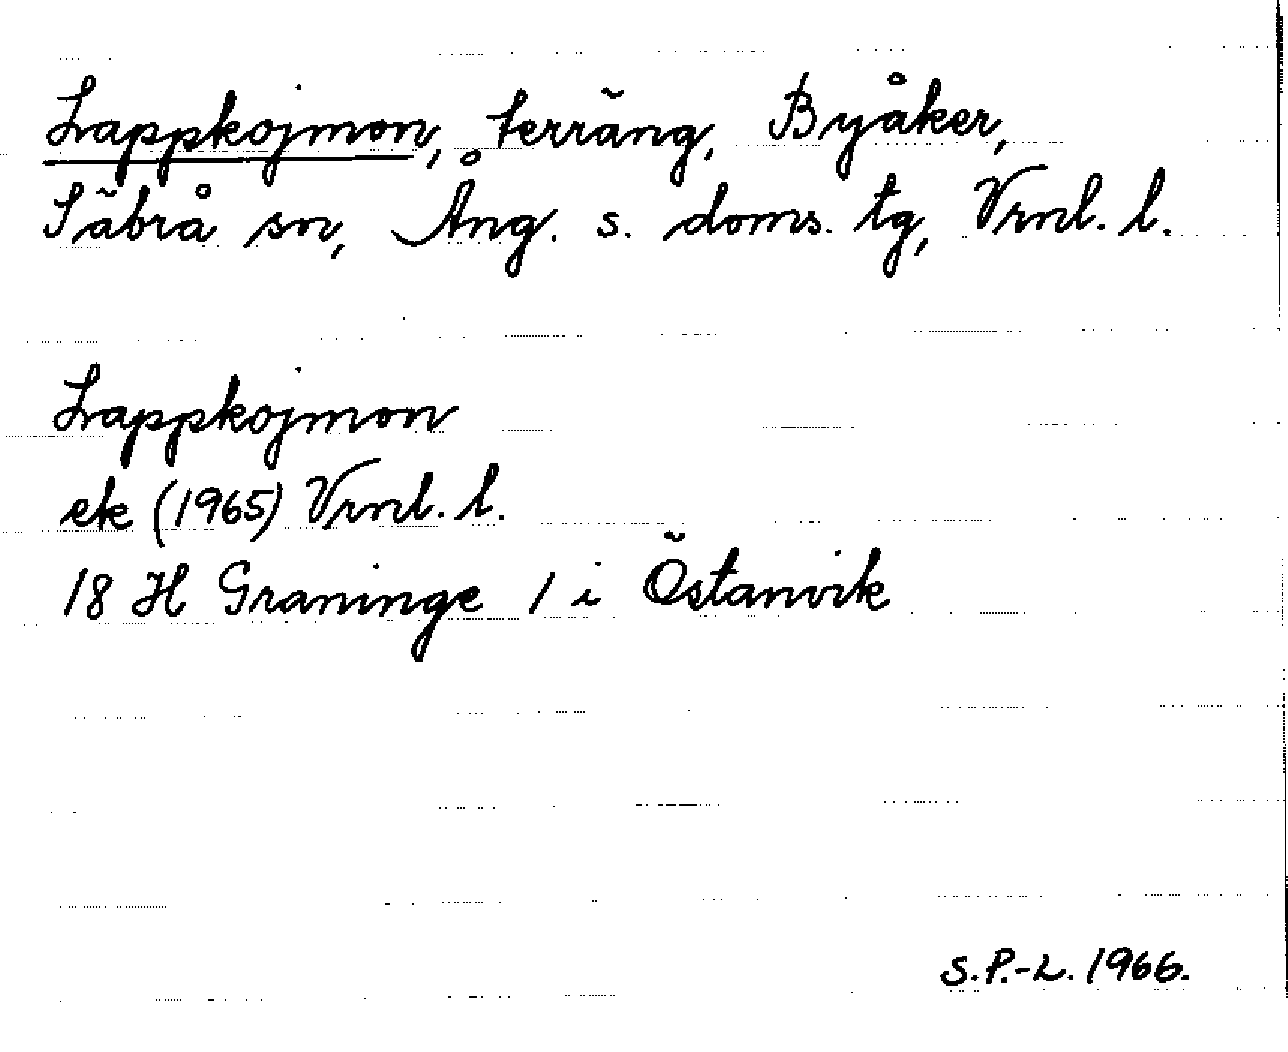 Lappkojmon, terräng, Byåker,
Säbrå sn, Ång. s. doms. tg, Vrnl. l.
Lappkojmon
ek (1965) Vrnl. l.
18 H Graninge 1 i Östanvik
S.P.-L. 1966.